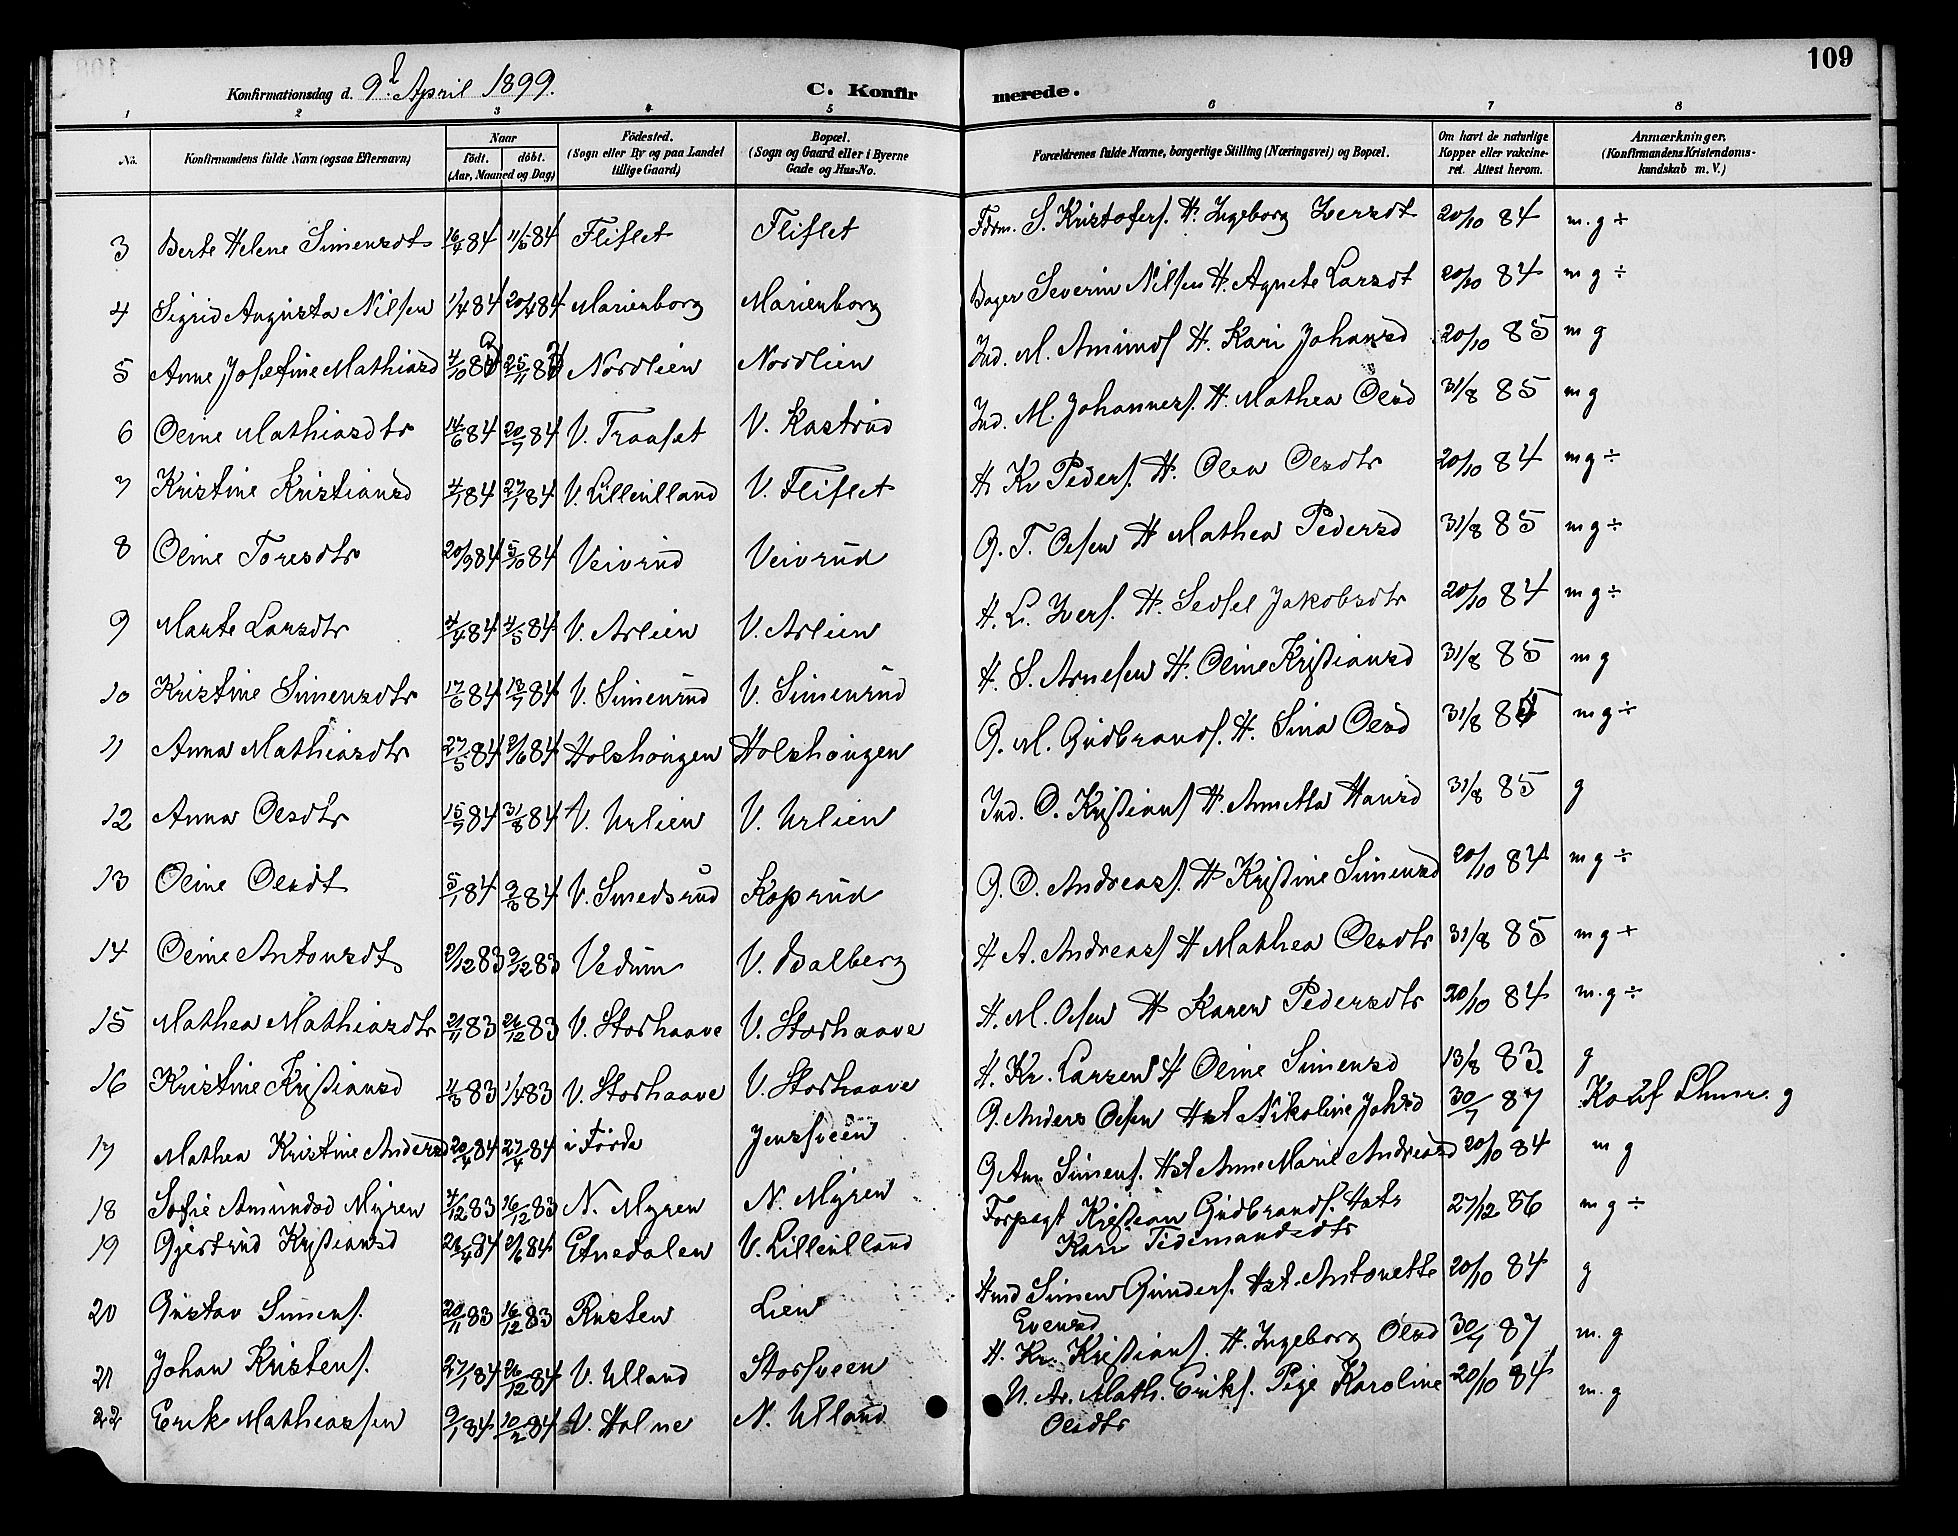 109
Konfirmationsdag d. 9d April 1899. C. Konfirmerede.
1 2 3 4 5 6 7 8
No. Konfirmandens fulde Navn (ogsaa Efternavn) Naar födt. döbt. (Aar, Maaned og Dag) Födested. (Sogn eller By og paa Landet tillige Gaard) Bopæl. (Sogn og Gaard eller i Byerne Gade og Hus-No. Forældrenes fulde Navne, borgerlige Stilling (Næringsvei) og Bopæl. Om havt de naturlige Kopper eller vakcineret. Attest herom. Anmærkninger. (Konfirmandens Kristendomskundskab m. V.)
3 Berte Helene Simensdt 16/4 84 11/5 84 Fliflet Fliflet Fdrm. S. Kristofers. H. Ingeborg Iversdt 20/10 84 m. g ÷
4 Sigrid Augusta Nilsen 1/4 84 20/4 84 Marienborg Marienborg Bager Severin Nilsen H. Agnete Larsdt 20/10 84 m g ÷
5 Anne Josefine Mathiasd 4/10 83 25/11 83 Nordlien Nordlien Ind. M. Amunds H. Kari Johansd 20/10 85 m g
6 Oline Mathiasdtr 14/6 84 20/7 84 V. Fraaset V. Kastrud Ind. M. Johannes. H. Mathea Olsd 31/8 85 m g
7 Kristine Kristiansd 4/7 84 27/7 84 V. Lilleulland V. Fliflet H Kr Peders. H. Olea Olsdtr 20/10 84 m g ÷
8 Oline Toresdtr 20/9 84 5/10 84 Veivrud Veivrud G. T. Olsen H Mathea Pedersd 31/8 85 m g ÷
9 Marte Larsdtr 4/4 84 4/5 84 V. Arlien V. Arlien H. L. Ivers. H. Sedsel Jakobsdtr 20/10 84 m g ÷
10 Kristine Simensdtr 17/6 84 13/7 84 V. Simenrud V. Simenrud H. S. Arnesen H. Oline Kristiansd 31/8 85 m g
11 Anna Mathiasdtr 27/5 84 2/6 84 Holshougen Holshougen G. M. Gudbrands. H. Sina Olsd 31/8 85 m g ÷
12 Anna Olsdtr 15/7 84 31/8 84 V. Urlien V. Urlien Ind. O. Kristians H. Annetta Hansd 31/8 85 g
13 Oline Olsdt 5/1 84 9/3 84 V. Smedsrud Koprud G. O. Andreas. H Kristine Simensd 20/10 84 m g ÷
14 Oline Antonsdt 2/12 83 9/12 83 Vedum V. Balberg H A. Andreass H Mathea Olsdtr 31/8 85 m g +
15 Mathea Mathiasdtr 21/11 83 26/12 83 V. Storhaave V. Storhaave H. M. Olsen H Karen Pedersdtr 20/10 84 m. g ÷
16 Kristine Kristiansd 4/3 83 1/4 83 V. Storhaave V. Storhaave H. Kr. Larsen H Oline Simensd 13/8 83. g
17 Mathea Kristine Andersd 20/4 84 27/4 84 i Förde Jensveen G. Anders Olsen Hst Nikoline Johsd 30/7 87 Konf Lhmr. g
18 Sofie Amundsd Myren 4/12 83 16/12 83 N. Myren N. Myren G Am Simens. Hst Anne Marie Andreasd 20/10 84 m g
19 Gjertrud Kristiansd 28/4 84 2/6 84 Etnedalen V. Lilleulland Forpagt Kristian Gudbrands. Hst
Kari Tidemandsdtr 27/12 86 m g ÷
20 Gustav Simens. 20/11 83 16/12 83 Rusten Lien Husd Simen Gunders. Hst. Antonette
Evensd 20/10 84 g
21 Johan Kristens. 27/1 84 26/12 84 V. Ulland Storsveen H. Kr. Kristians. H. Ingeborg Olsd 30/7 87 m. g
22 Erik Mathiassen 9/1 84 10/2 84 V. Holme N. Ulland U. Ar. Math. Eriks. Pige Karoline
Olsdtr 20/10 84 m. g